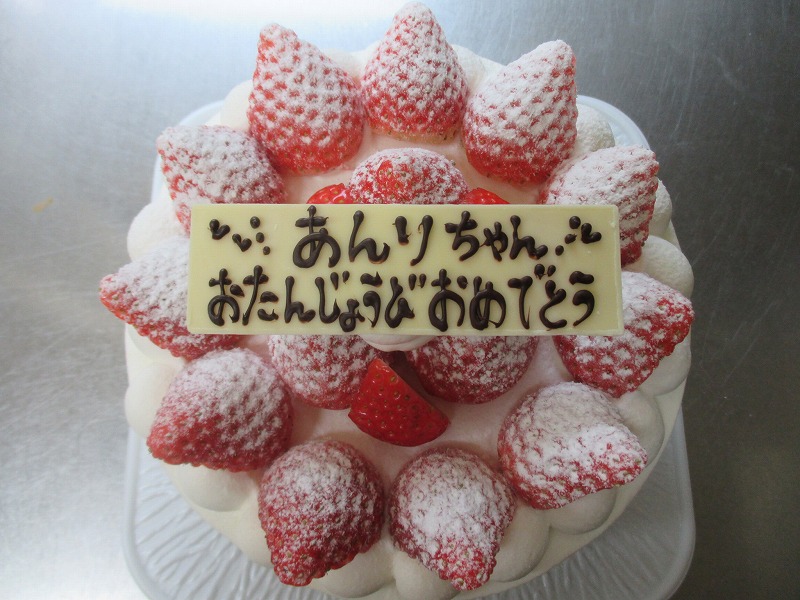 あんりちゃん
おたんじょうびおめでとう